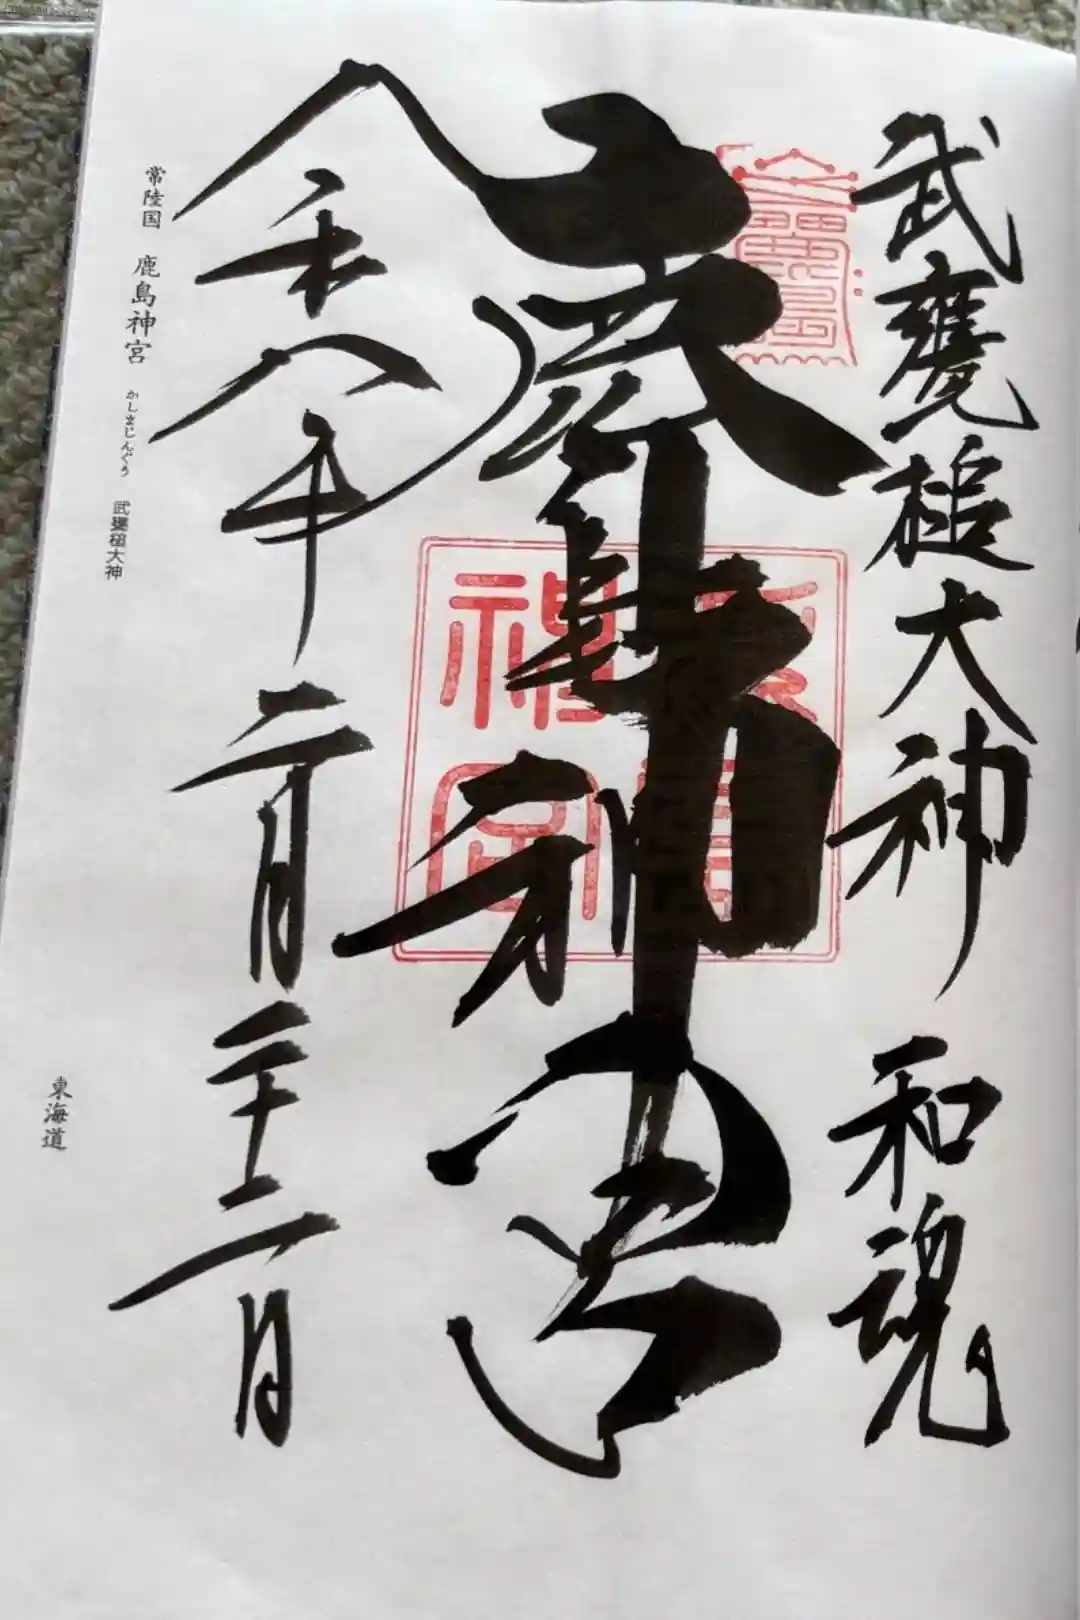 武甕槌大神 和魂
鹿島神宮
鹿島
鹿島神宮
令和八年二月二十二日
常陸国 鹿島神宮 かしまじんぐう 武甕槌大神
東海道